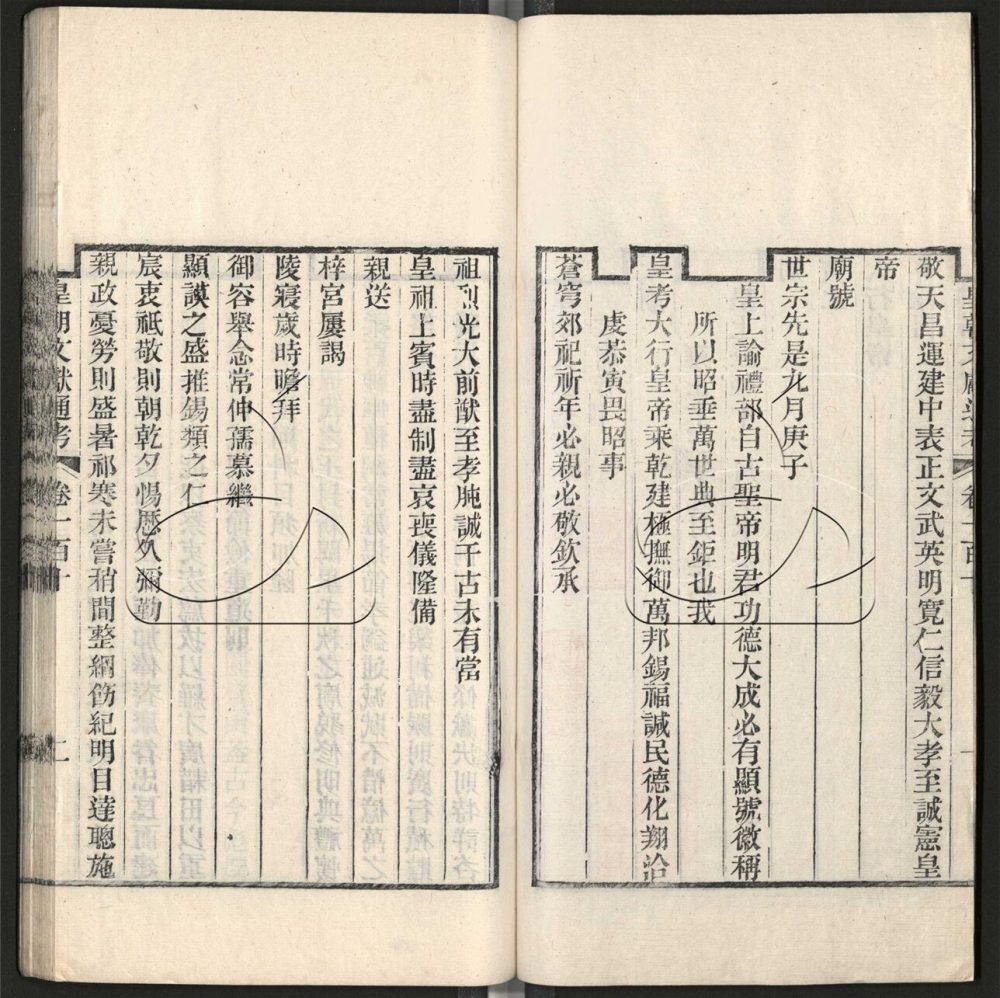 敬天昌運建中表正文武英明寬仁信毅大孝至誠憲皇
帝
廟號
世宗先是九月庚子
皇上諭禮部自古聖帝明君功德大成必有顯號徽稱
所以昭垂萬世典至鉅也我
皇考大行皇帝乘乾建極撫御萬邦錫福諴民德化翔洽
虔恭寅畏昭事
蒼穹郊祀祈年必親必敬欽承
祖烈光大前猷至孝肫誠千古未有當
皇祖上賓時盡制盡哀喪儀隆備
親送
梓宮屢謁
陵寢歲時瞻拜
御容舉念常伸孺慕繼
顯謨之盛推錫類之仁
宸衷祗敬則朝乾夕惕歷久彌勤
親政憂勞則盛暑祁寒未嘗稍間整綱飭紀明目達聰施
皇朝文獻通考 卷一百十 二